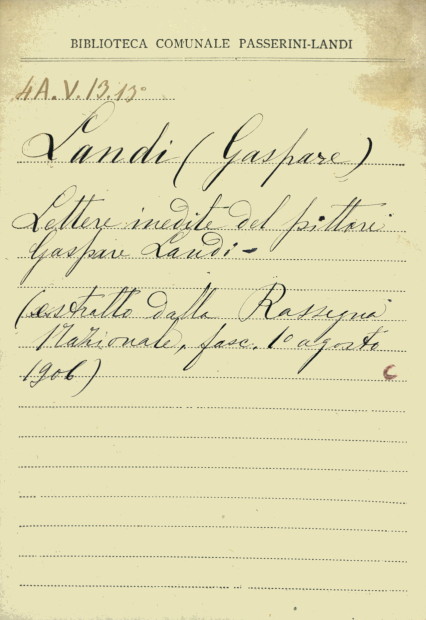 BIBLIOTECA COMUNALE PASSERINI-LANDI
4A.V.13.13°
Landi (Gaspare)
Lettere inedite del pittore
Gaspare Landi -
(estratto dalla Rassegna
Nazionale, fasc. 1° agosto
1906)
C